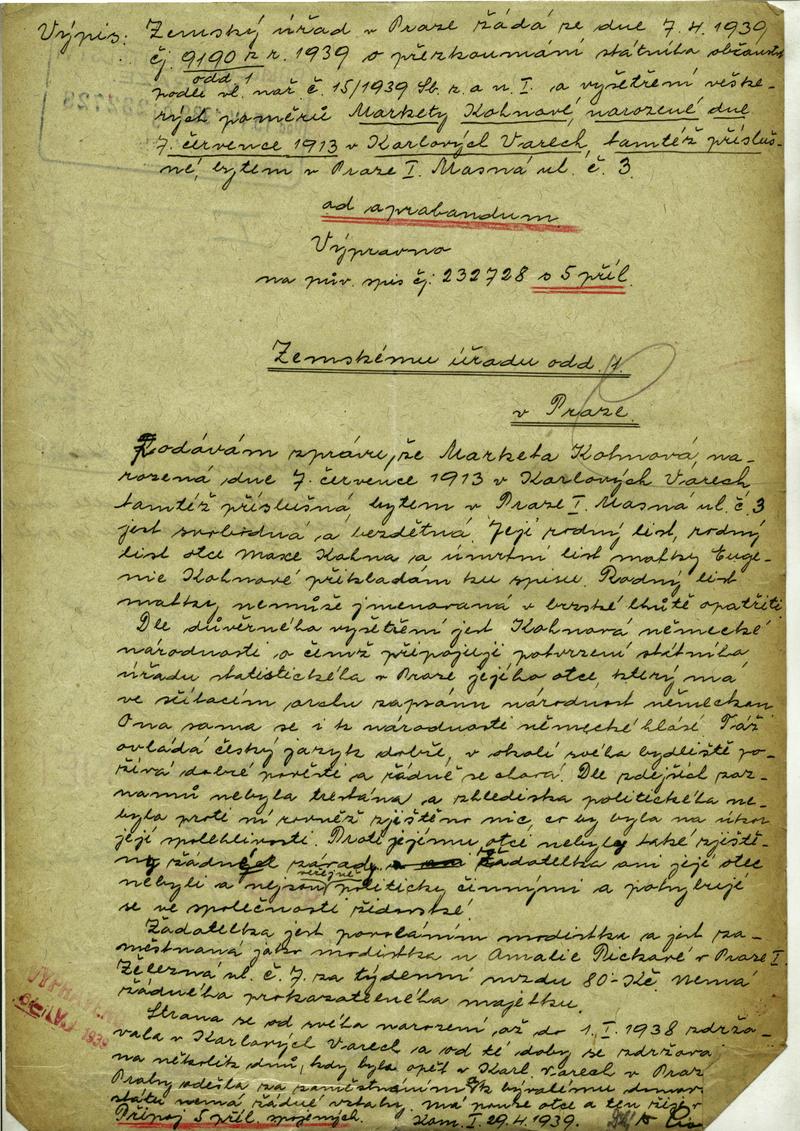 Výpis: Zemský úřad v Praze žádá ze dne 7.4.1939
čj. 9190 z r. 1939 o přezkoumání státního občanst.
odd 1
podle vl. nař. č. 15/1939 Sb. z. a n. I. a vyšetření veške-
rých poměrů Markety Kohnové, narozené dne
7. července 1913 v Karlových Varech, tamtéž přísluš-
né, bytem v Praze I. Masná ul. č. 3.
ad aprobandum.
Výpravna
na pův. spis čj. 232728 s 5 příl.
Zemskému úřadu odd. 1.
v Praze.
Podávám zprávu, že Marketa Kohnová, na-
rozená dne 7. července 1913 v Karlových Varech
tamtéž příslušná, bytem v Praze I. Masná ul. č. 3
jest svobodná a bezdětná. Její rodný list, rodný
list otce Maxe Kohna a úmrtní list matky Euge-
nie Kohnové přikládám ku spisu. Rodný list
matky, nemůže jmenovaná v brzské lhůtě opatřiti.
Dle důvěrného vyšetření jest Kohnová německé
národnosti o čemž připojuji potvrzení státního
úřadu statistického v Praze jejího otce, který má
ve sčítacím archu zapsánu národnost německou.
Ona sama se i k národnosti německé hlásí. Táž
ovládá český jazyk dobře, v okolí svého bydliště po-
žívá dobré pověsti a řádně se chová. Dle zdejších záz-
namů nebyla trestána a z hlediska politického ne-
bylo proti ní rovněž zjištěno nic, co by bylo na úkor
její spolehlivosti. Proti jejímu otci nebyly také zjiště-
ny žádné závady. Žadatelka ani její otec
veřejně
nebyli a nejsou politicky činnými a pohybují
se ve společnosti židovské.
Žadatelka jest povoláním modistka a jest za-
městnaná jako modistka u Amalie Pickové v Praze I.
Železná ul. č. 7. za týdenní mzdu 80 Kč. Nemá
žádného prokazatelného majetku.
Strana se od svého narození, až do 1. I. 1938 zdržo-
vala v Karlových Varech a od té doby se zdržova
na několik dnů, kdy byla opět v Karl. Varech v Praz
Prahy odešla za zaměstnáním. K bývalému domov.
státu nemá žádné vztahy, má pouze otce a ten žije v
Připoj 5 příl. spojených. Kom. I. 29.4.1939.